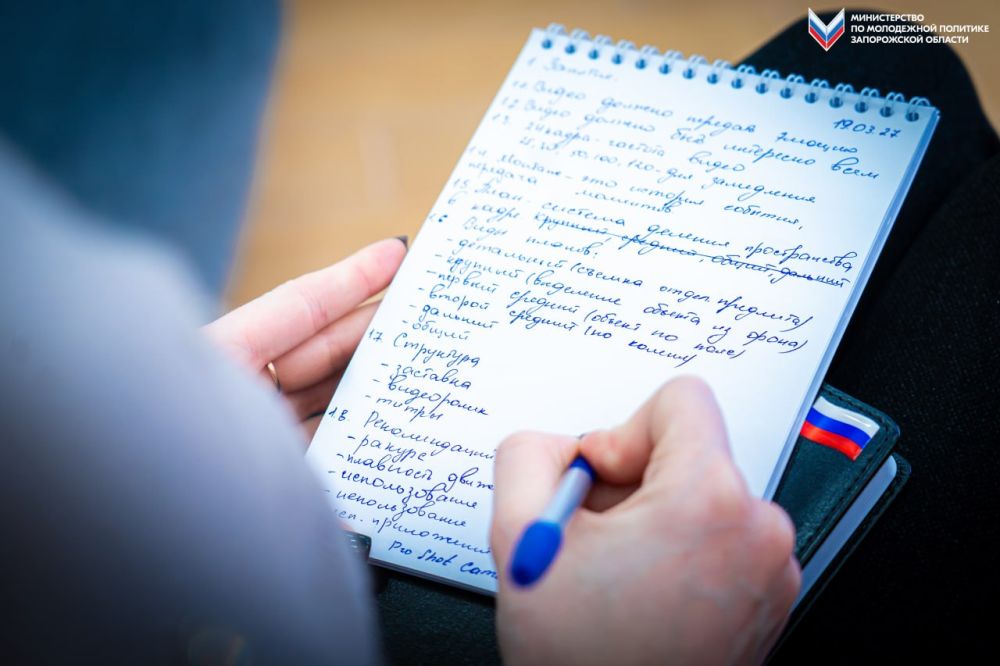 МИНИСТЕРСТВО
ПО МОЛОДЕЖНОЙ ПОЛИТИКЕ
ЗАПОРОЖСКОЙ ОБЛАСТИ
1. Занятие.
19.03.27
1.1. Видео должно передав эмоцию
1.2 Видео должно быть интересно всем
1.3. 24 кадра-частота видео
25, 30, 50, 100, 120-для замедления
1.4 Монтаж-это история события,
передача моментов
1.5 План-система деления пространства
в кадре крупный, средний, общий, дальний
1.6 Виды планов:
- детальный (съемка отдел. предмета)
- крупный (выделение объекта из фона)
- первый средний (объект по пояс)
- второй средний (по колени)
- дальний
- общий
1.7 Структура
- заставка
- видеоролик
- титры
1.8. Рекомендации
- ракурс
- плавность движе
- использование
- использование
приложений
Pro Shot Cam